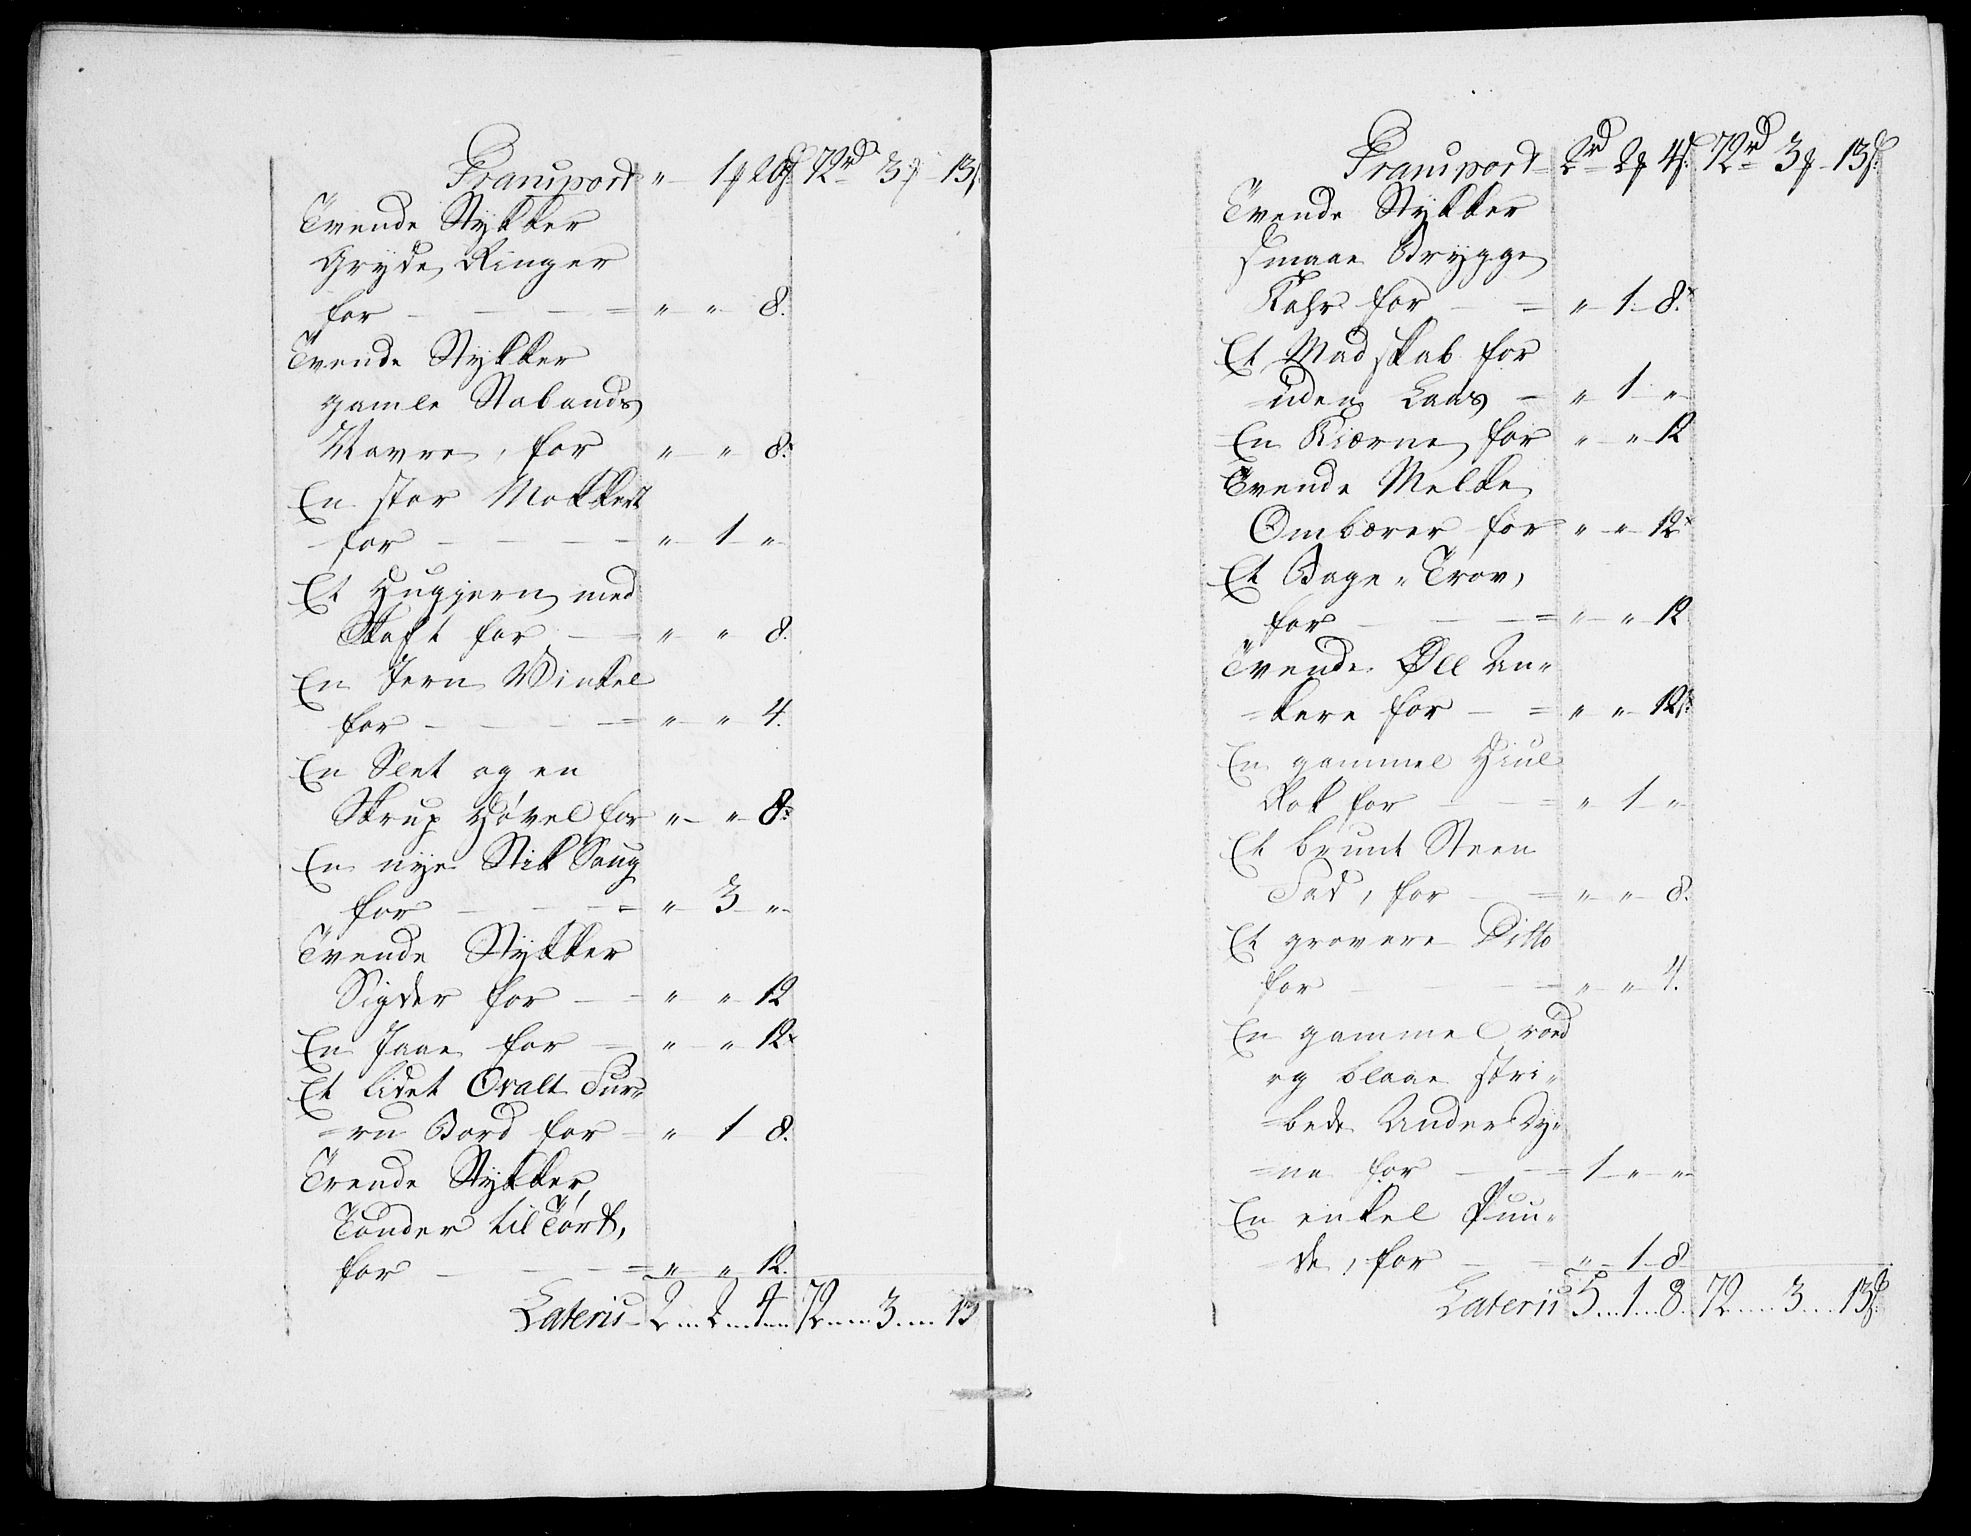 Transport " 1 ₰ 20 ß. 72 rd 3 ₰ 13 ß.
Tvende Stykker
Gryde Ringer
for - - - = " - " 8.
Tvende Stykker
gamle Stabands
for " - " 8.
En stor Mokkert
for - - - - " 1 "
Et Hugjern med
Skaft for - - " - " 8.
En Jern Vinkel
for - - - = " - " 4.
En Slet og en
Skrup Høvel for " - " 8.
En nye Stik Saug
for - - - = " 3 "
Tvende Stykker
Sigder for - - " - " 12
En Jaae for - " - " 12
Et lidet Ovalt Fur=
=ru Bord for - " 1 8.
Trende Stykker
Tønder til Tørt,
for - - - = " - " 12.
Lateris - 2 ... 2 ... 4 ... 72 ... 3 ... 13
Transport 2 rd 2 ₰ 4 ß. 72 rd 3 ₰ 13 ß.
Tvende Stykker
smaae Brygge
Kahr for - = " 1 8.
Et Madskab for
uden Laas - " 1 "
En Kierne for " - " 12
Tvende Melke
Ombærer for " - " 12
Et Bage = Trov,
for - - - = " - " 12
Tvende Øll An=
=kere for - = " - " 12 ß.
En gammel Hiul
Rok for - - = " 1 "
Et brunt Steen
Fad, for - = " - " 8.
Et grovere Ditto
for - - - = " - " 4.
En gammel røed
og blaae stri=
=bede Under Dy=
=ne for - - = 1 " "
En enkel Puu=
de, for - = " 1 8
Lateris 5 ... 1 ... 8. 72 ... 3 ... 13 ß.